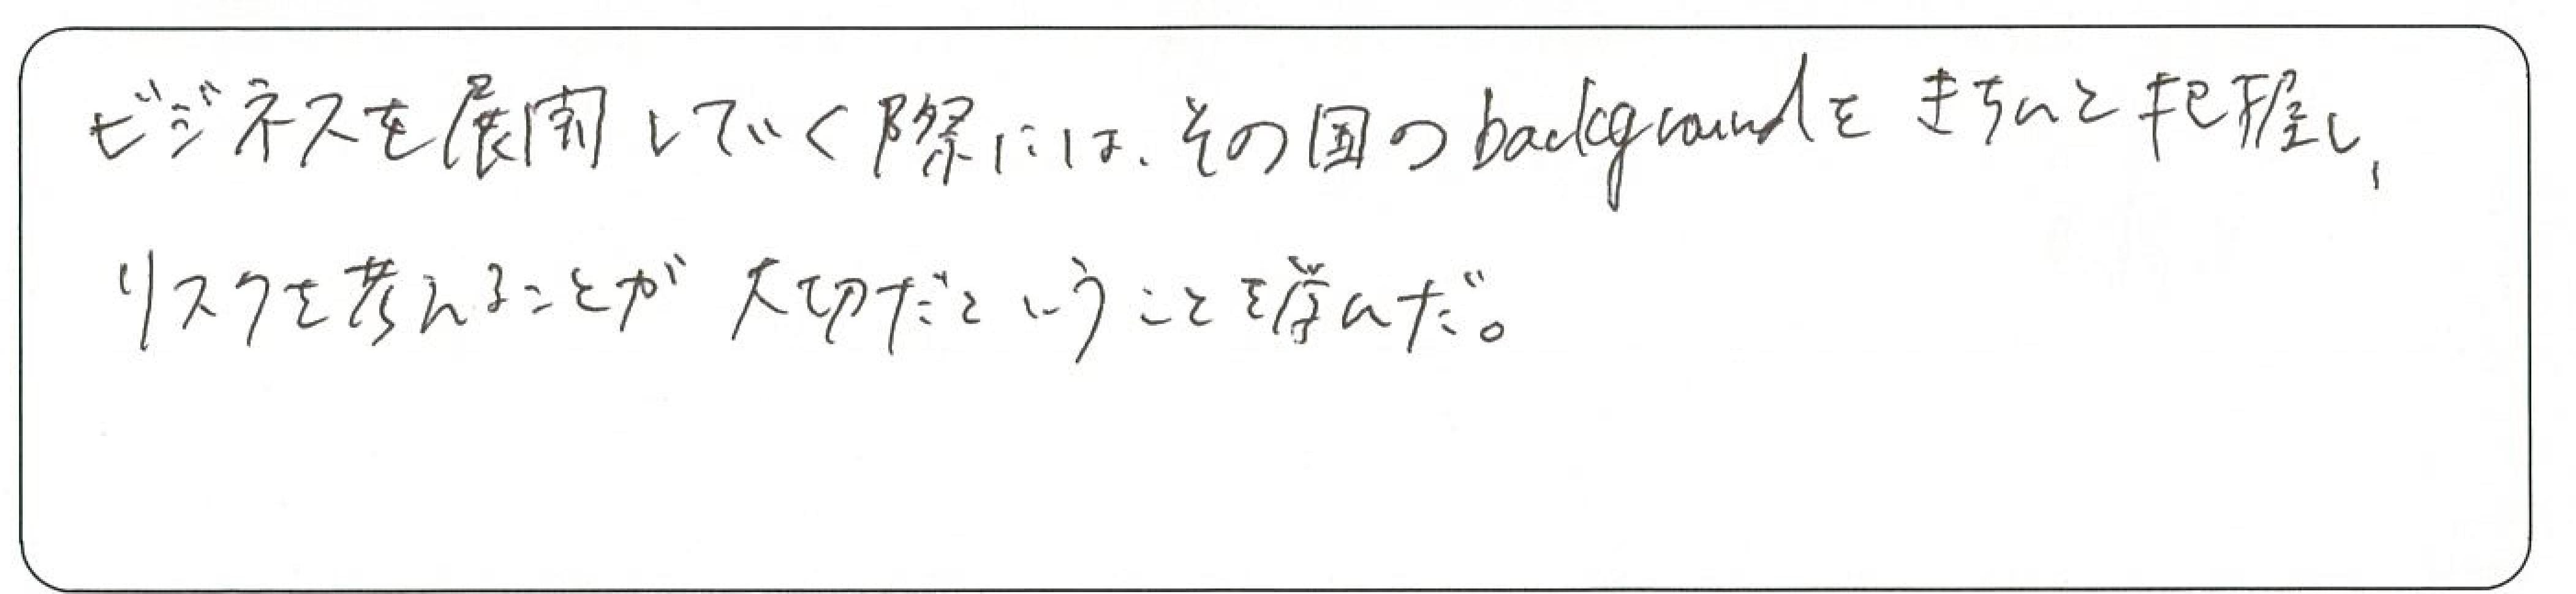 ビジネスを展開していく際には、その国のbackgroundをきちんと把握し、
リスクを考えることが大切だということを学んだ。